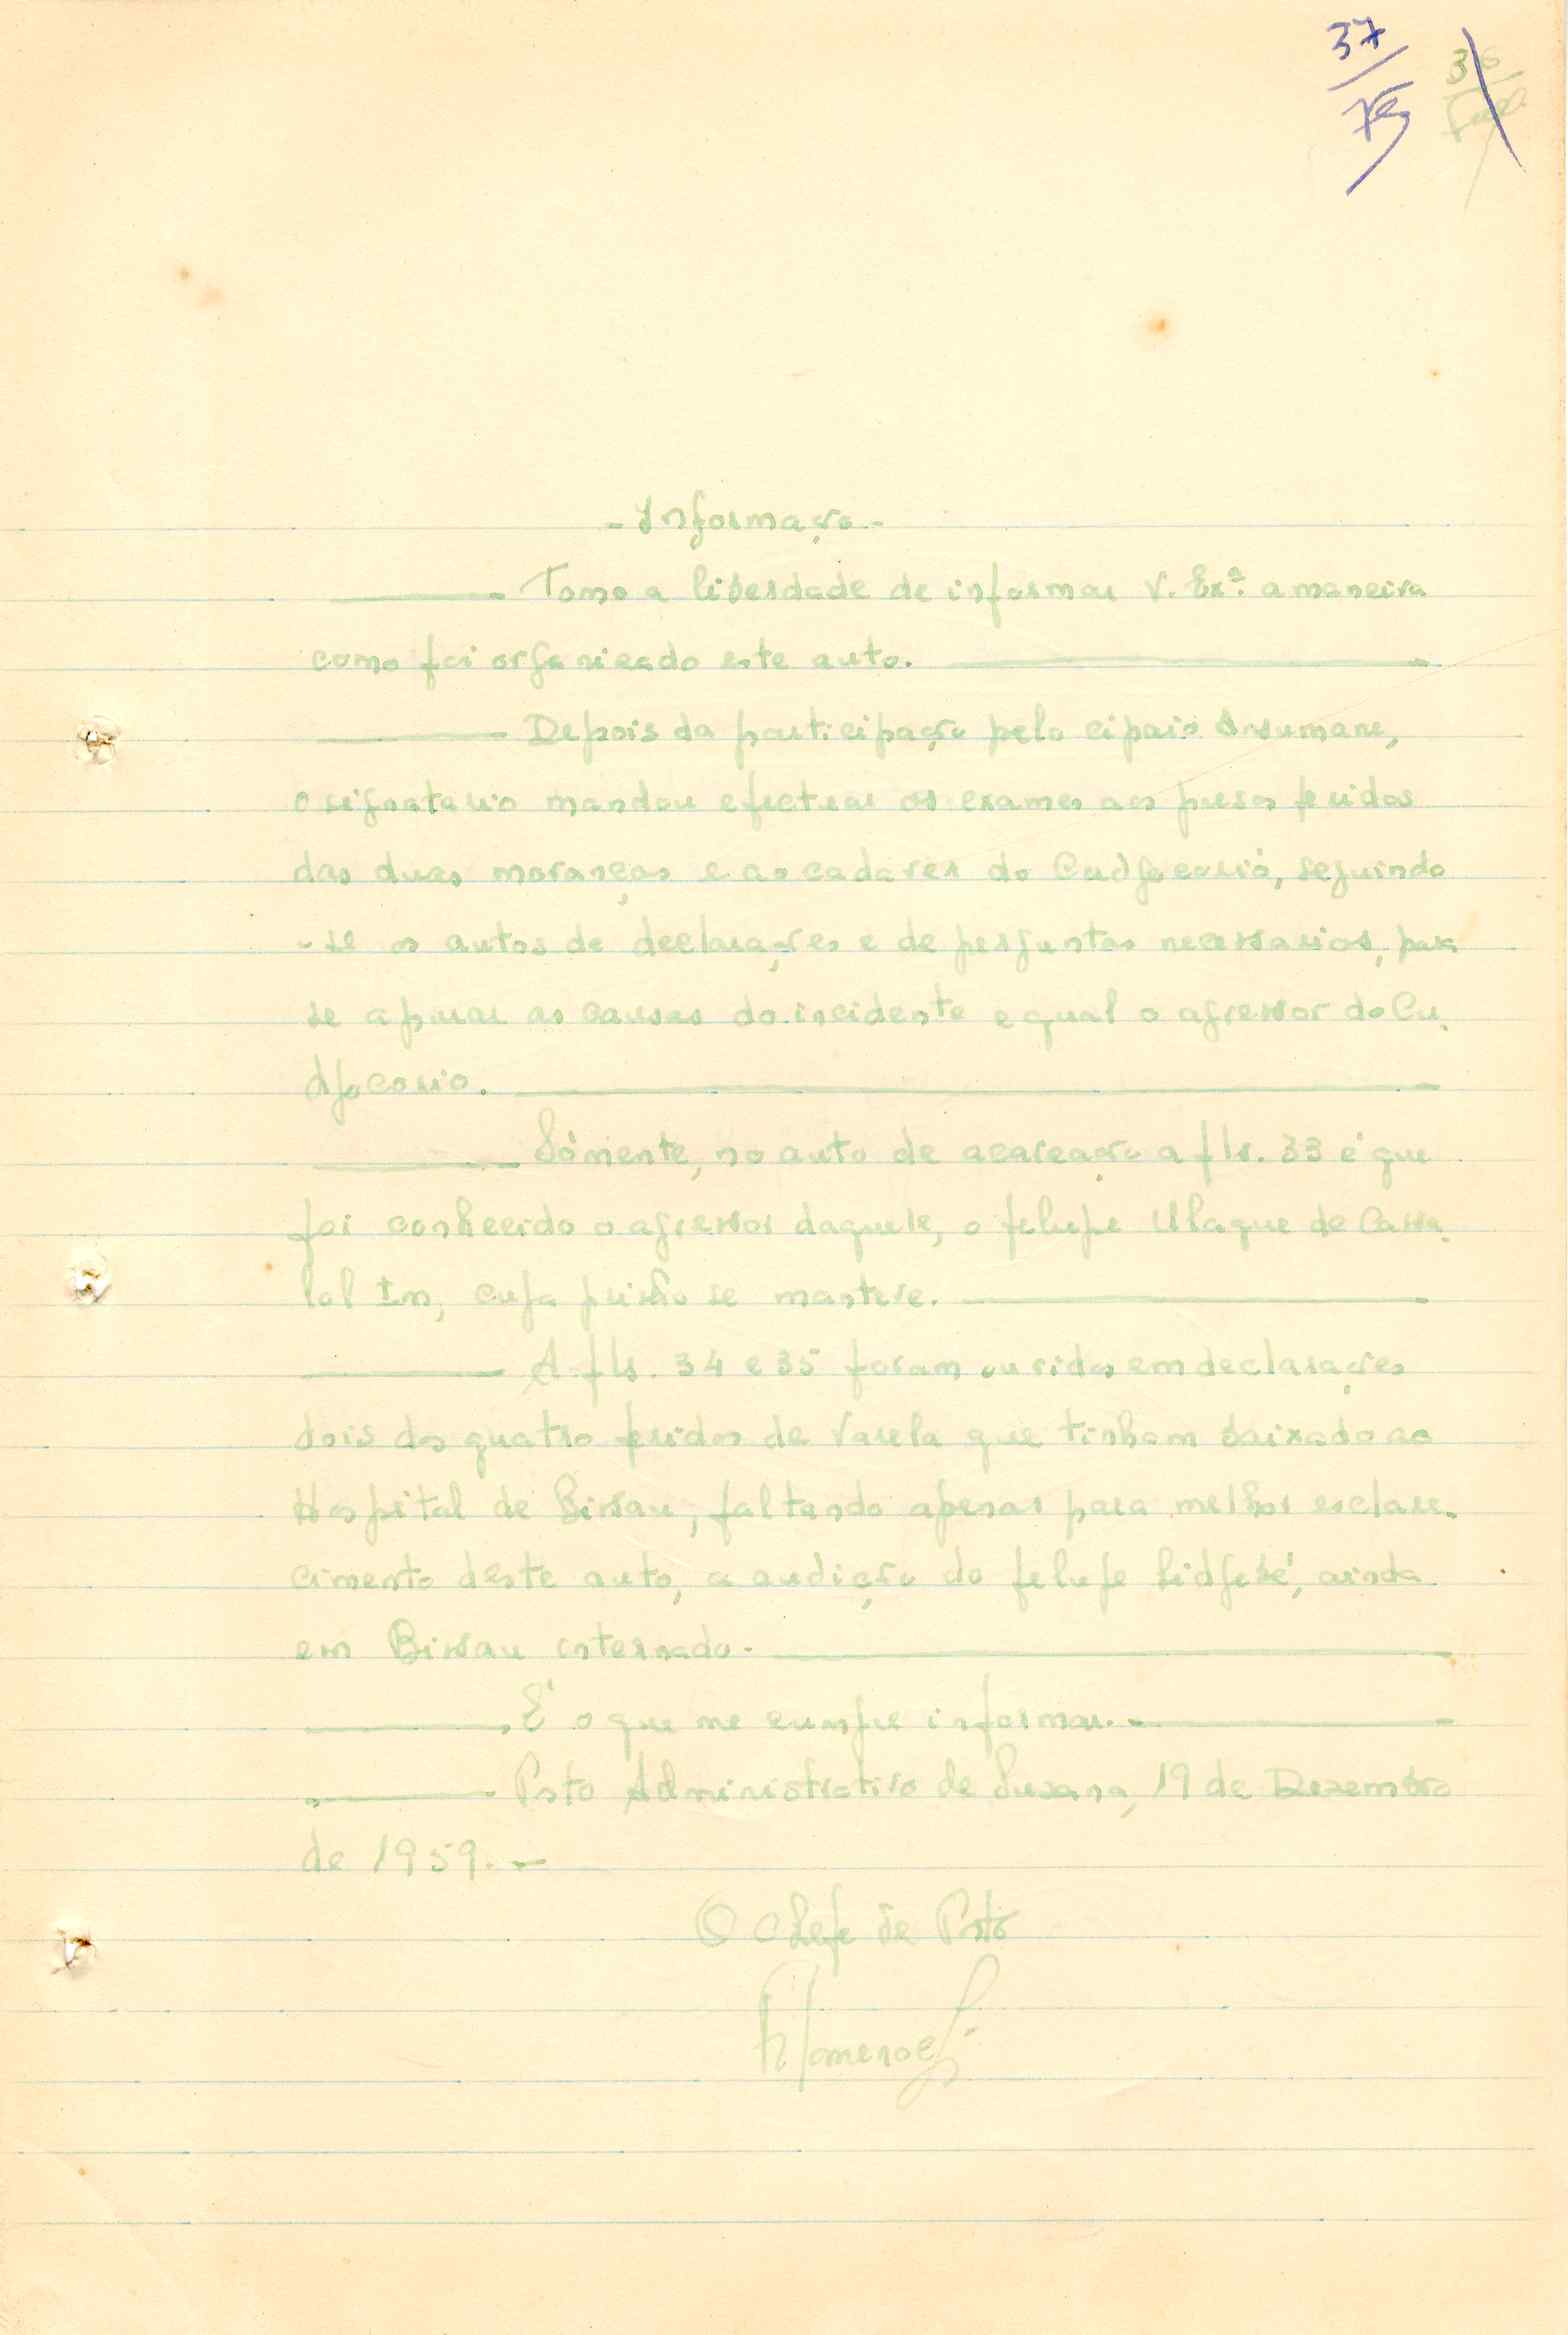 37
36
- Informação -
Tomo a liberdade de informar V. Exª. a maneira
como foi organizado este auto.
Depois da participação pelo cipaio Ansumane,
o signatario mandou efectuar os exames aos presos feridos
das duas moranças e ao cadaver do Cudjocorió, seguindo
-se os autos de declarações e de perguntas necessarios, para
se apurar as causas do incidente e qual o agressor do Cu-
djocorio.
Sómente, no auto de acareação a fls. 33 é que
foi conhecido o agressor daquele, o felupe Ulaque de Cassa-
lol Im, cuja prisão se manteve.
A fls. 34 e 35 foram ouvidos em declarações
dois dos quatro feridos de Varela que tinham baixado ao
Hospital de Bissau, faltando apenas para melhor esclare-
cimento deste auto, a audição do felupe Lidjebé, ainda
em Bissau internado.
É o que me cumpre informar.
Posto Administrativo de Susana, 19 de Dezembro
de 1959.
O Chefe de Posto